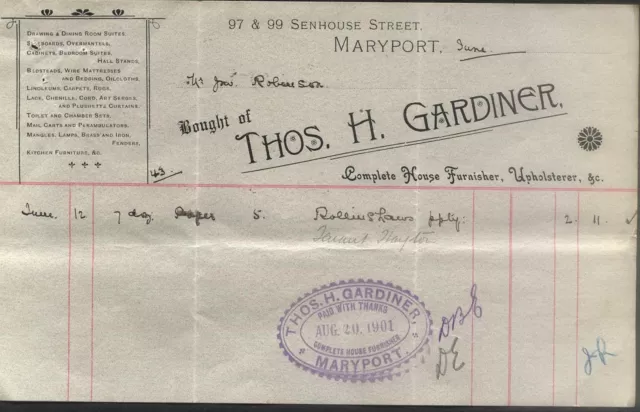 97 & 99 SENHOUSE STREET,
MARYPORT, June
DRAWING & DINING ROOM SUITES.
SIDEBOARDS, OVERMANTELS,
CABINETS, BEDROOM SUITES,
HALL STANDS,
BEDSTEADS, WIRE MATTRESSES
AND BEDDING, OILCLOTHS,
LINOLEUMS, CARPETS, RUGS,
LACE, CHENILLE, CORD, ART SERGES,
AND PLUSHETTE CURTAINS.
TOILET AND CHAMBER SETS.
MAIL CARTS AND PERAMBULATORS.
MANGLES, LAMPS, BRASS AND IRON
FENDERS,
KITCHEN FURNITURE, &c.
Mr Jos. Robinson
Bought of
THOS. H. GARDINER,
Complete House Furnisher, Upholsterer, &c.
43
June 12 7 doz 5. ppty: 2 11
THOS. H. GARDINER,
PAID WITH THANKS
AUG 20. 1901
COMPLETE HOUSE FURNISHER
MARYPORT